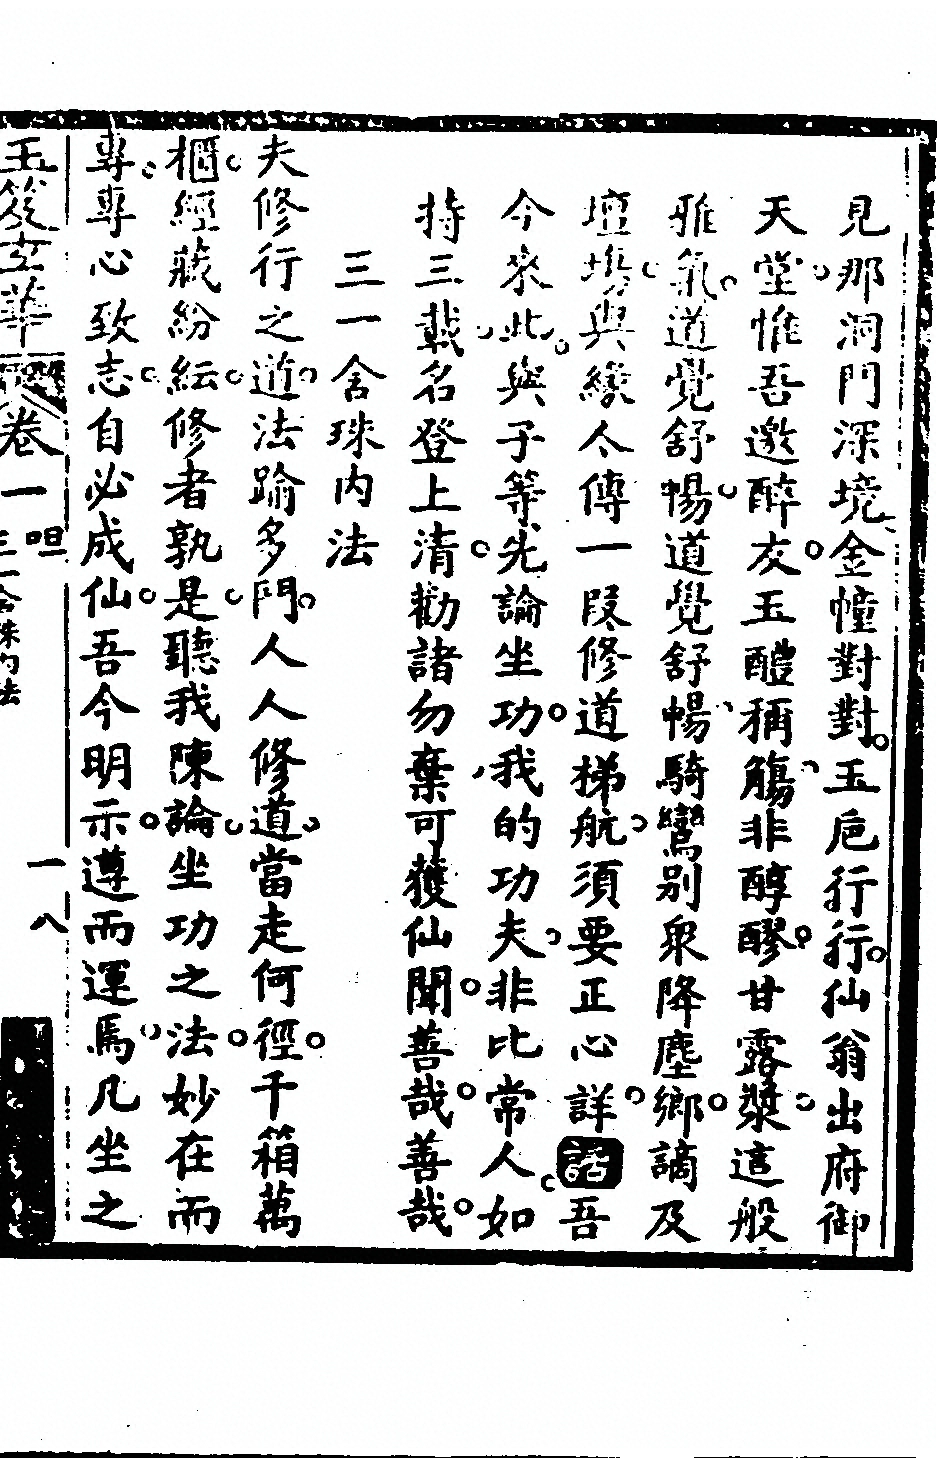 見那洞門深境金幢對對玉巵行行仙翁出府御
天堂惟吾邀醉友玉醴稱觴非醇醪甘露漿這般
雅氣道覺舒暢道覺舒暢騎鸞別衆降塵鄉謫及
壇塲與緣人傳一段修道梯航須要正心詳吾
今來此與子等先論坐功我的功夫非比常人如
持三載名登上清勸諸勿棄可獲仙聞善哉善哉
三一舍珠内法
夫修行之道法踰多門人人修道當走何徑千箱萬
櫃經藏紛紜修者孰是聽我陳論坐功之法妙在而
專專心致志自必成仙吾今明示遵而運焉凡坐之
玉笈金華卷一 三一舍珠内法 一八